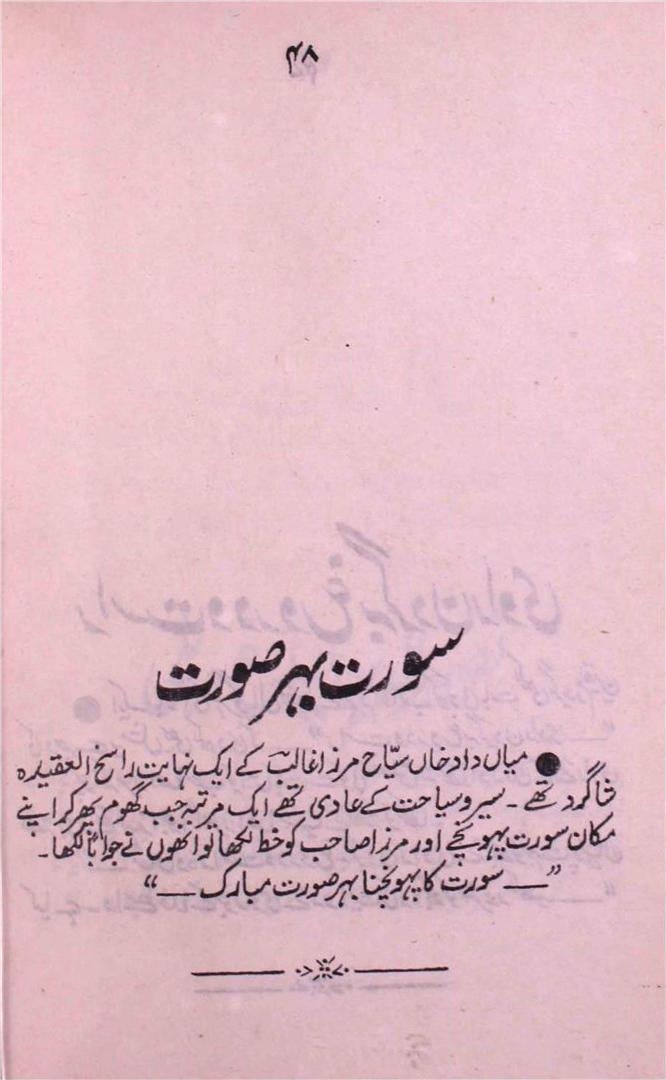 ۴۸
سورت بہر صورت
● میاں داد خاں سیّاح مرزا غالب کے ایک نہایت راسخ العقیدہ
شاگرد تھے ۔ سیر و سیاحت کے عادی تھے ایک مرتبہ جب گھوم پھر کر اپنے
مکان سورت پہونچے اور مرزا صاحب کو خط لکھا تو انھوں نے جواباً لکھا ۔
”— سورت کا پہونچنا بہر صورت مبارک —“